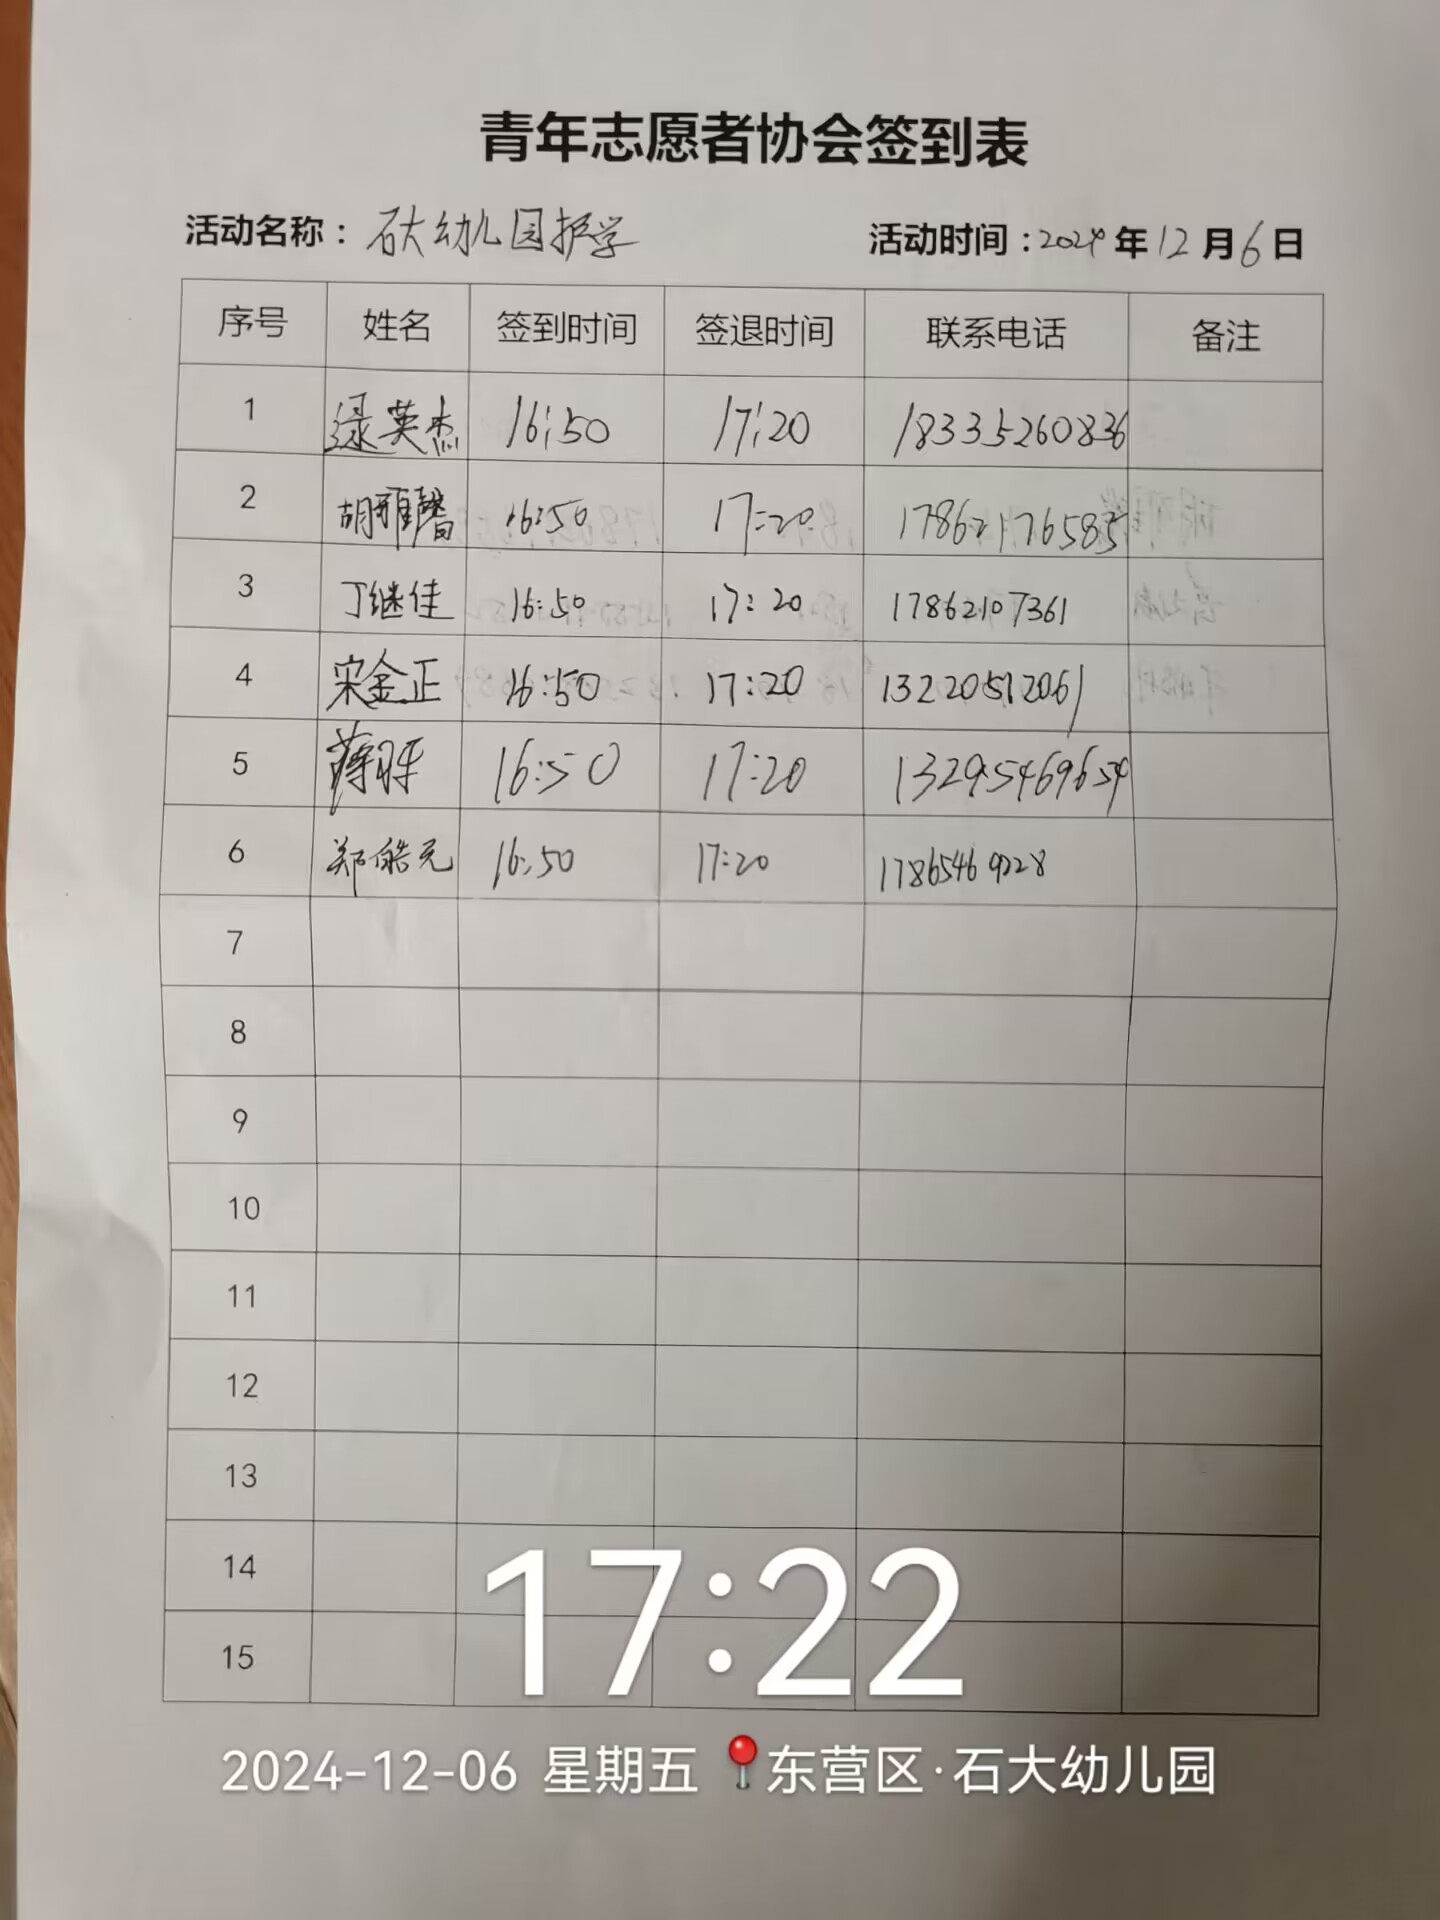 青年志愿者协会签到表
活动名称：石大幼儿园护学 活动时间：2024年12月6日
序号 姓名 签到时间 签退时间 联系电话 备注
1 绿英杰 16:50 17:20 18335260836
2 胡雅馨 16:50 17:20 17862176585
3 丁继佳 16:50 17:20 17862107361
4 宋金正 16:50 17:20 13220512061
5 16:50 17:20 13295469654
6 郑皓元 16:50 17:20 17865469228
7
8
9
10
11
12
13
14
15
17:22
2024-12-06 星期五 东营区·石大幼儿园